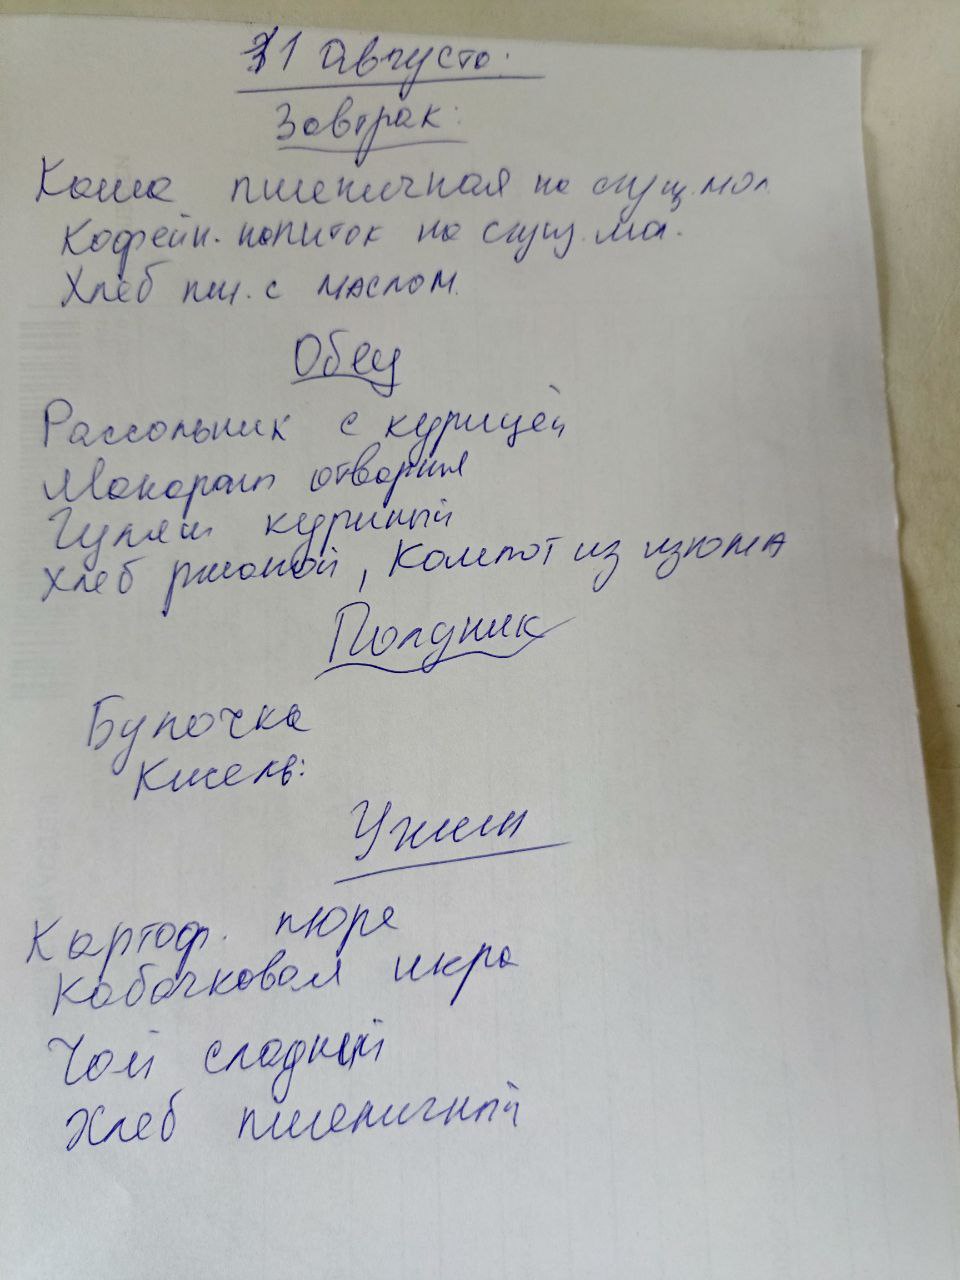 31 августа.
Завтрак:
Каша пшеничная на сгущ.мол.
Кофейн. напиток на сгущ. мол.
Хлеб пш. с маслом.
Обед
Рассольник с курицей
Макарон отварня
Гуляш куриный
Хлеб ржаной, Компот из изюма
Полдник
Булочка
Кисель:
Ужин
Картоф. пюре
Кабачковая икра
Чай сладкий
Хлеб пшеничный